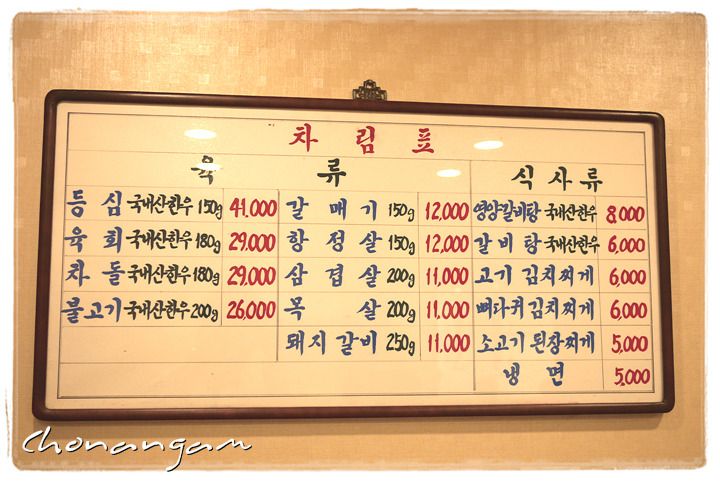 차림표
육류 식사류
등심 국내산한우 150g 41,000 갈매기 150g 12,000 영양갈비탕 국내산한우 8,000
육회 국내산한우 180g 29,000 항정살 150g 12,000 갈비탕 국내산한우 6,000
차돌 국내산한우 180g 29,000 삼겹살 200g 11,000 고기 김치찌게 6,000
불고기 국내산한우 200g 26,000 목살 200g 11,000 뼈다귀 김치찌게 6,000
돼지갈비 250g 11,000 소고기 된장찌게 5,000
냉면 5,000
Chonangam